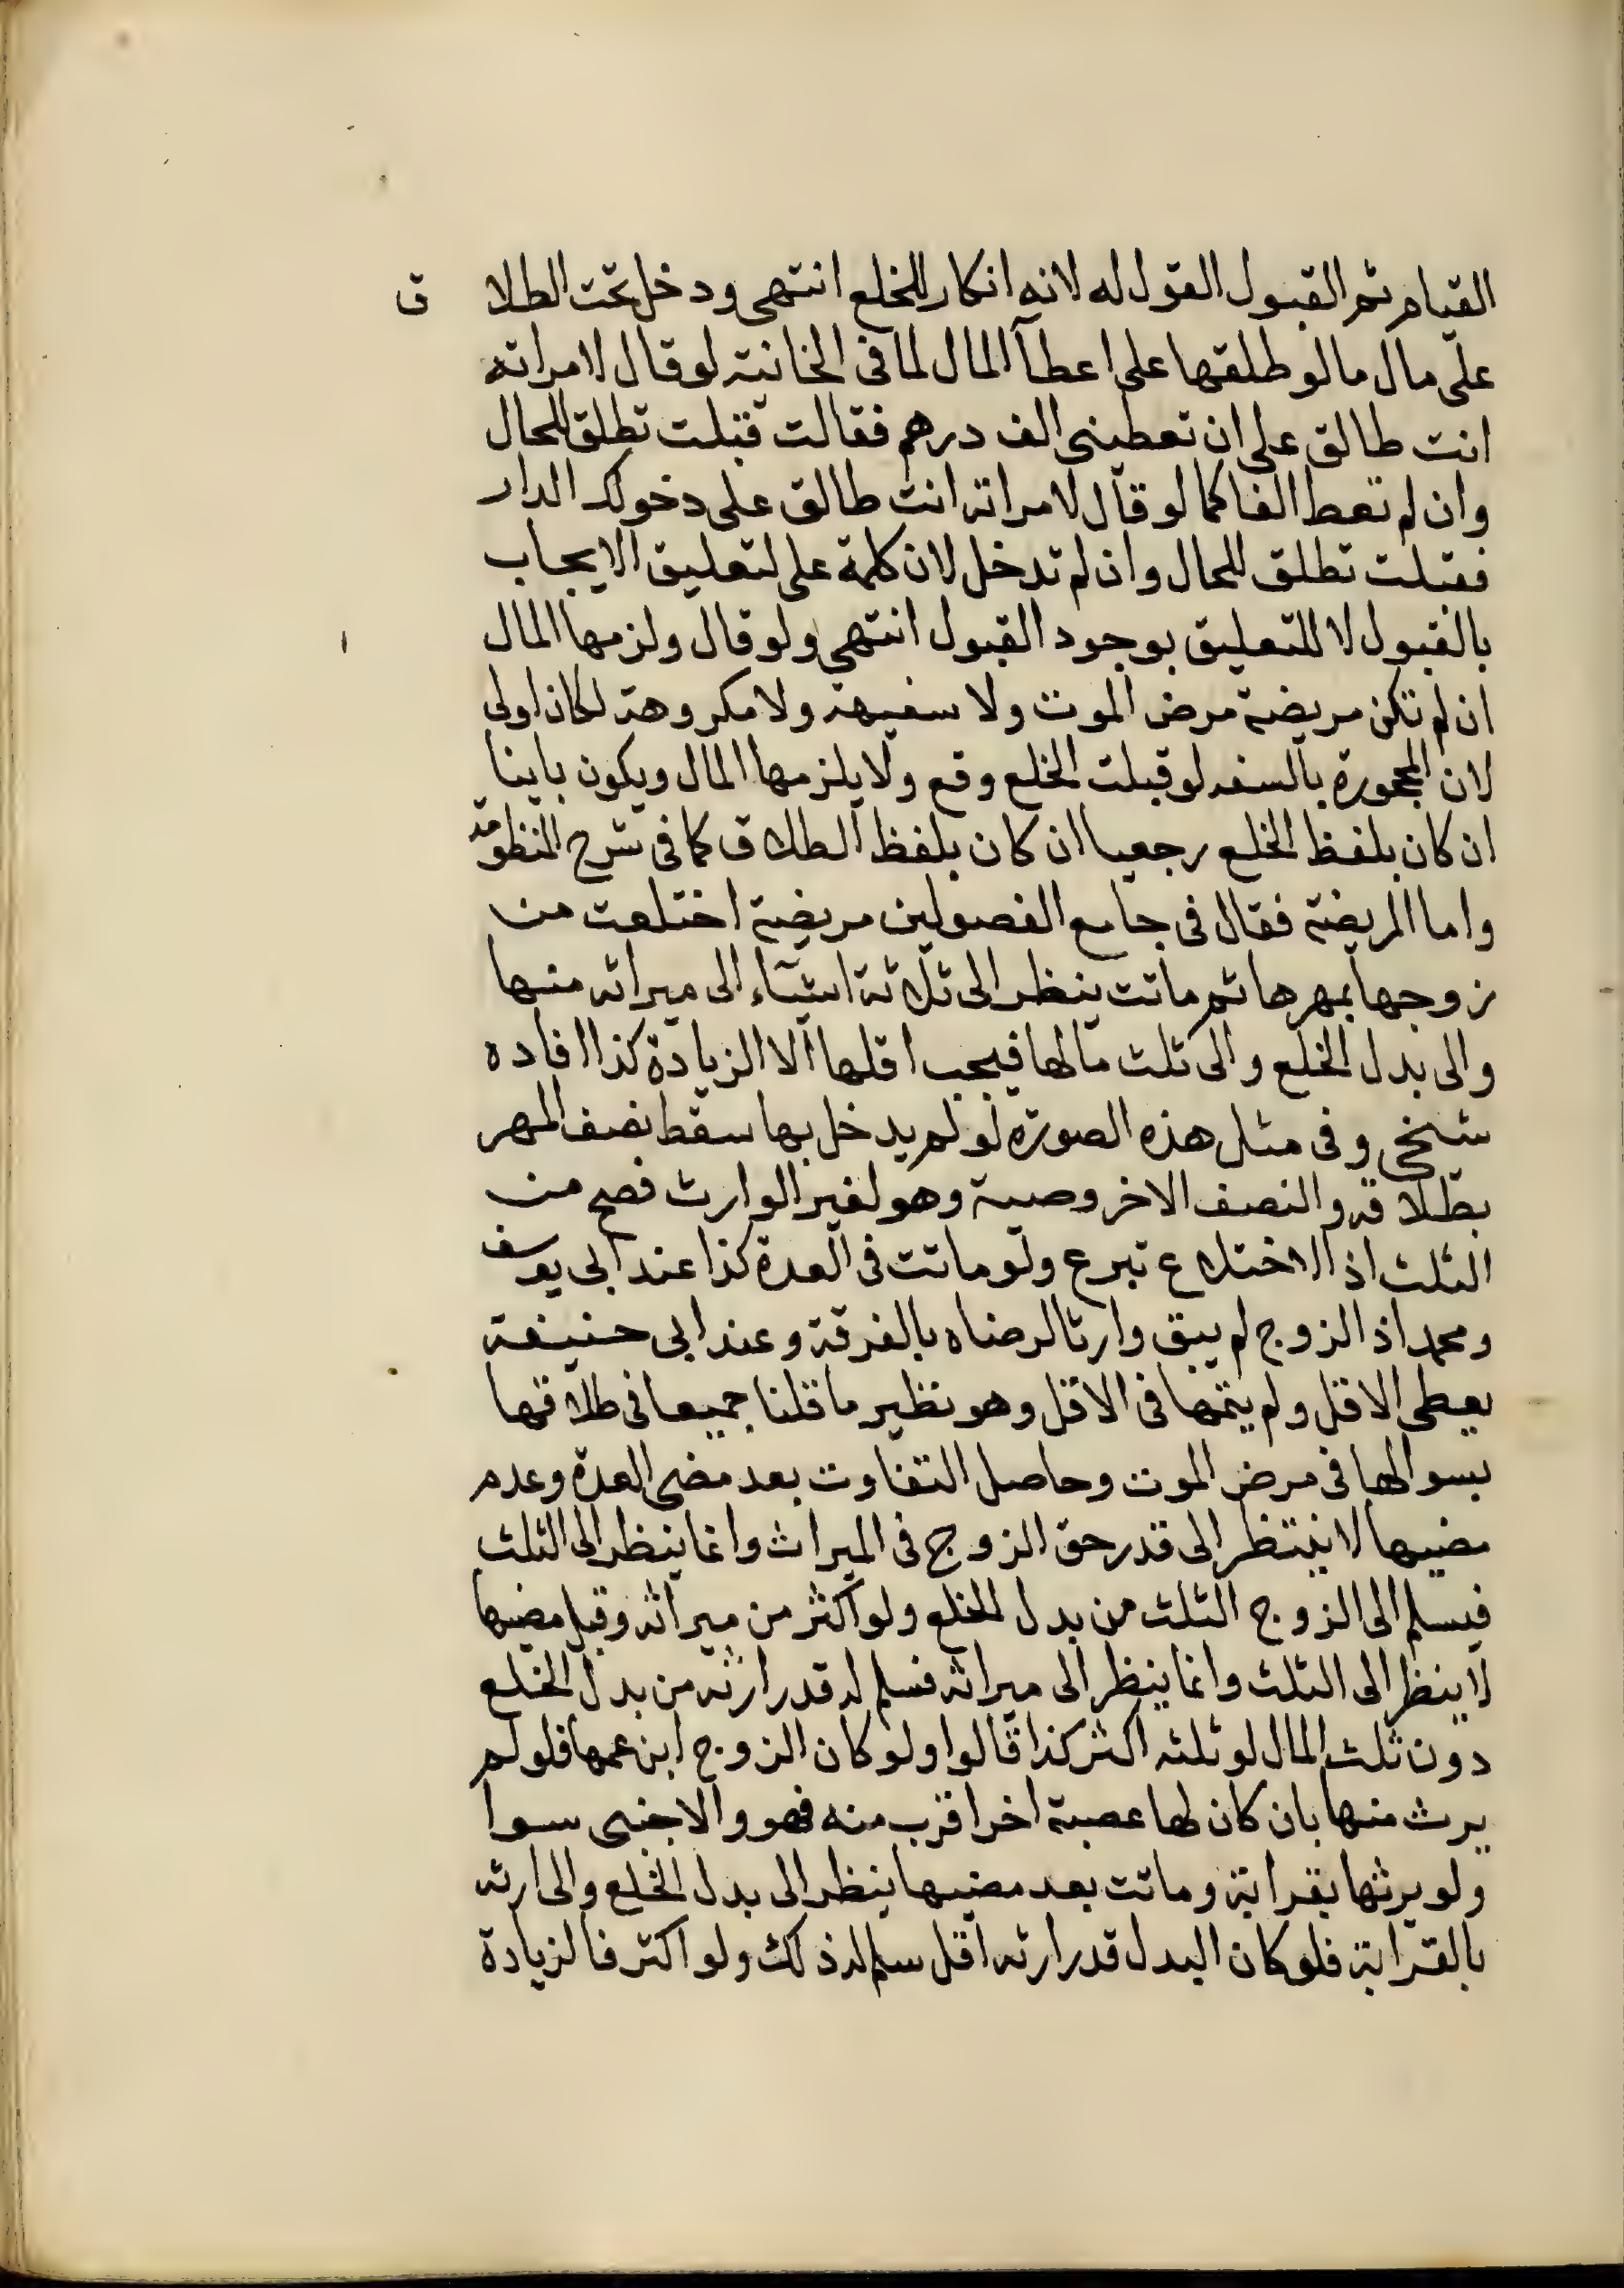 القيام ثم القبول القول له لانه انكار للخلع انتهى ودخل تحت الطلا ق
على مال مالو طلقها على اعطآ المال لما فى الخانية لو قال لامراته
انت طالق على ان تعطينى الف درهم فقالت قبلت تطلق للحال
وان لم تعط الفا كما لو قال لامراته انت طالق على دخولك الدار
فقبلت تطلق للحال وان لم تدخل لان كلمة على لتعليق الايجاب
بالقبول لا للتعليق بوجود القبول انتهى ولو قال ولزمها المال
ان لم تكن مريضة مرض الموت ولا سفيهة ولا مكروهة لكان اولى
لان المحجورة بالسفه لو قبلت الخلع وقع ولا يلزمها المال ويكون باينا
ان كان بلفظ الخلع رجعيا ان كان بلفظ الطلاق كما فى شرح المنظومة
واما المريضة فقال فى جامع الفصولين مريضة اختلعت من
زوجها بمهرها ثم ماتت ينظر الى ثلاثة اشيآء الى ميراثه منها
والى بدل الخلع والى ثلث مالها فيجب اقلها الا الزيادة كذا افاده
شيخى وفى مثل هذه الصورة لو لم يدخل بها سقط نصف المهر
بطلاقه والنصف الاخر وصية وهو لغير الوارث فصح من
الثلث اذ الاختلاع تبرع ولو ماتت فى العدة كذا عند ابى يوسف
ومحمد اذ الزوج لم يبق وارثا لرضاه بالفرقة وعند ابى حنيفة
يعطى الاقل ولم يتهما فى الاقل وهو نظير ما قلنا جميعا فى طلاقها
بسوالها فى مرض الموت وحاصل التفاوت بعد مضى العدة وعدم
مضيها لا ينتظر الى قدر حق الزوج فى الميراث وانما ينظر الى الثلث
فيسلم الى الزوج الثلث من بدل الخلع ولو اكثر من ميراثه وقبل مضيها
لا ينظر الى الثلث وانما ينظر الى ميراثه فسلم له قدر ارثه من بدل الخلع
دون ثلث المال لو ثلثه اكثر كذا قالوا ولو كان الزوج ابن عمها فلو لم
يرث منها بان كان لها عصبة اخر اقرب منه فهو والاجنبى سوا
ولو يرثها بقرابة وماتت بعد مضيها ينظر الى بدل الخلع والى ارثه
بالقرابة فلو كان البدل قدر ارثه اقل سلم له ذلك ولو اكثر فالزيادة